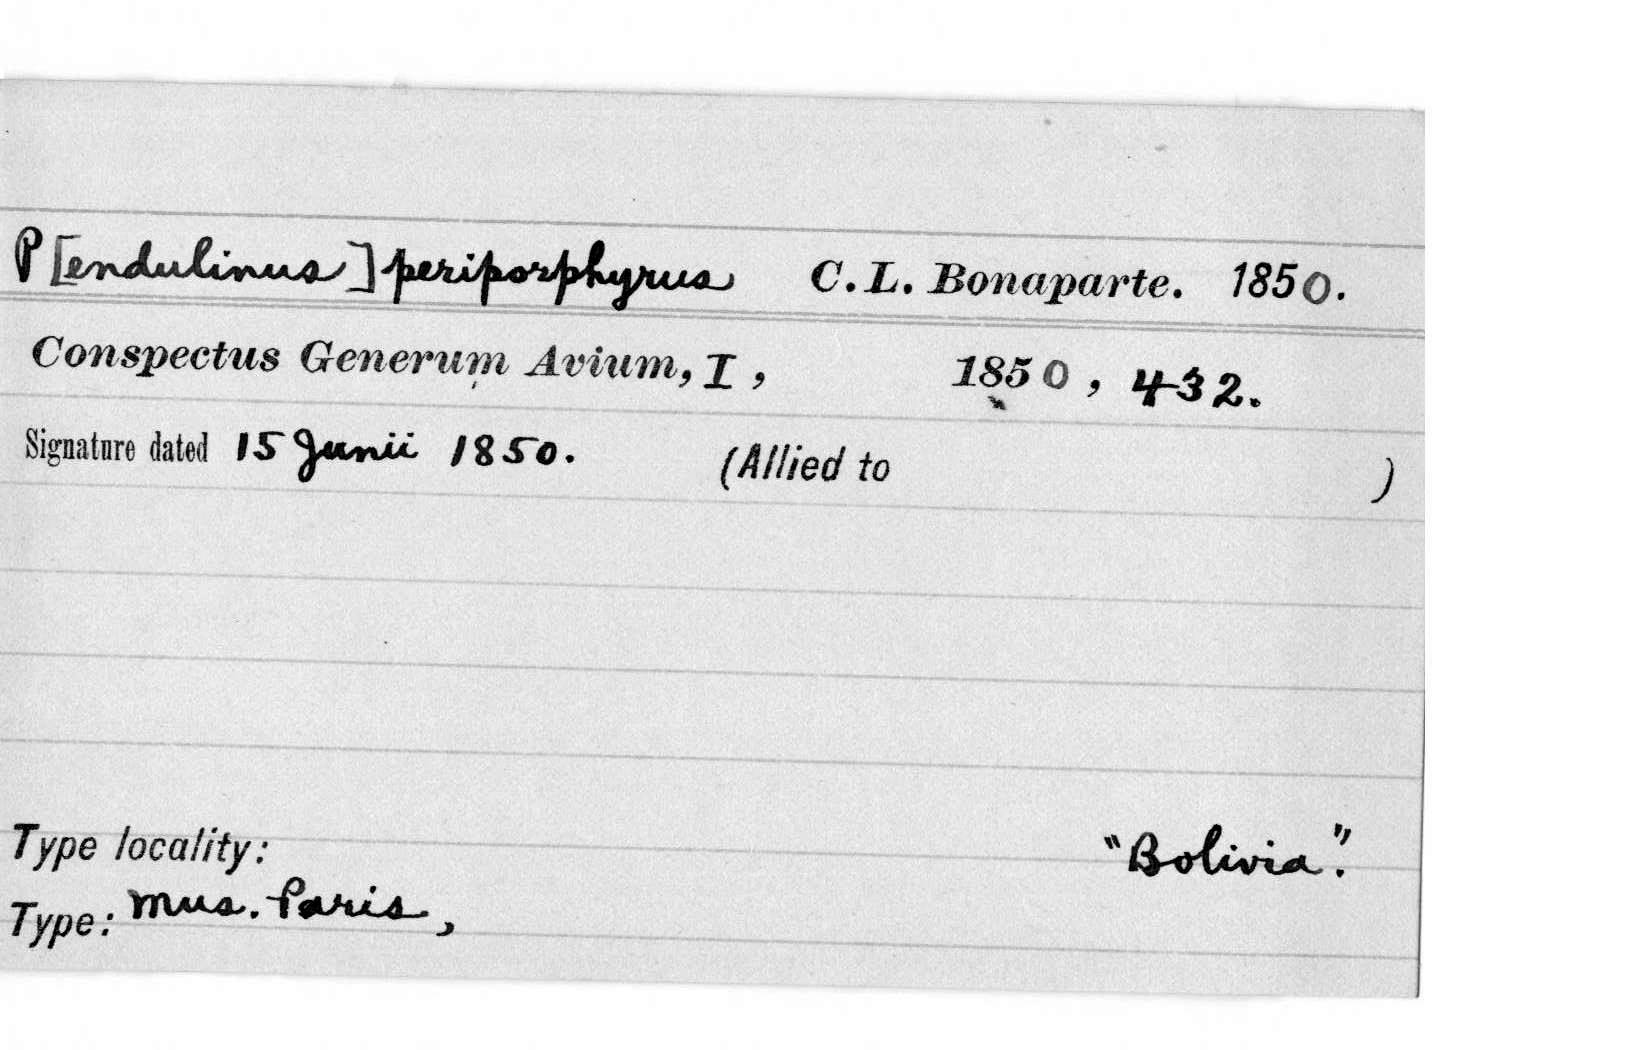 P[endulinus] periporphyrus C. L. Bonaparte. 1850.
Conspectus Generum Avium, I, 1850, 432.
Signature dated 15 Junii 1850. (Allied to )
Type locality: "Bolivia".
Type: Mus. Paris,